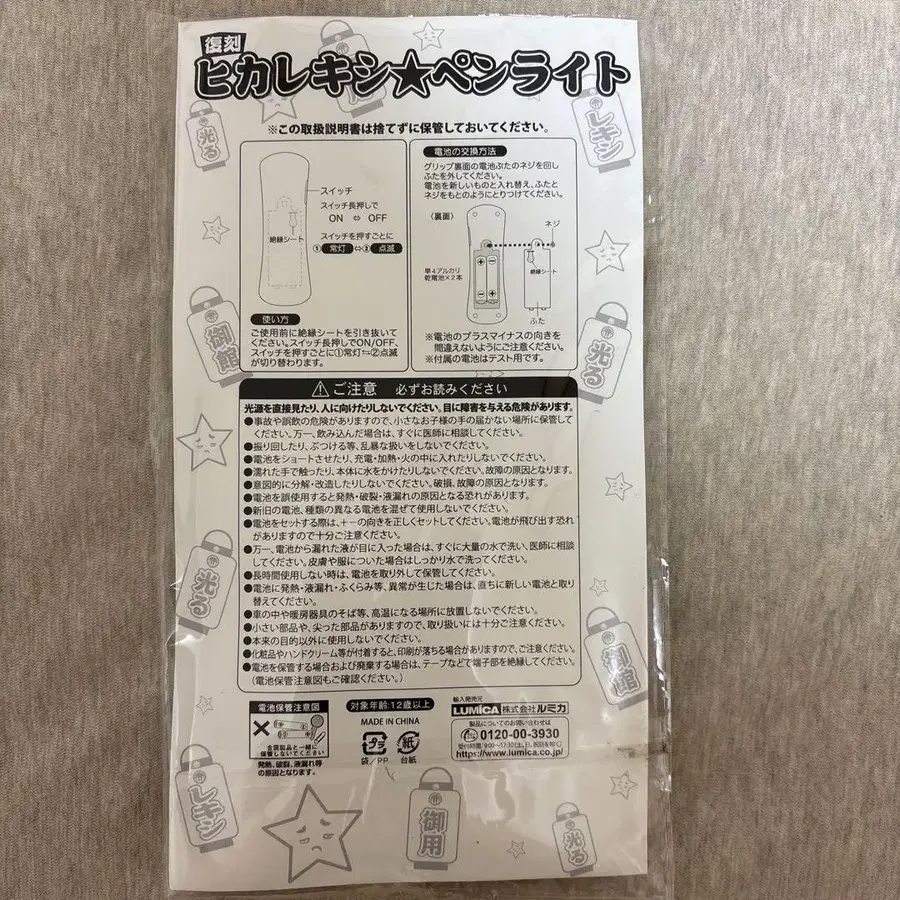 復刻
ヒカレキシ★ペンライト
※この取扱説明書は捨てずに保管しておいてください。
スイッチ
スイッチ長押しで
ON ⇔ OFF
スイッチを押すごとに
①常灯⇔②点滅
絶縁シート
使い方
ご使用前に絶縁シートを引き抜いて
ください。スイッチ長押しでON/OFF、
スイッチを押すごとに①常灯⇆②点滅
が切り替わります。
電池の交換方法
グリップ裏面の電池ぶたのネジを回し
ふたを外してください。
電池を新しいものと入れ替え、ふたと
ネジをもとのようにとりつけてください。
〈裏面〉
ネジ
単4アルカリ
乾電池×2本
絶縁シート
ふた
※電池のプラスマイナスの向きを
間違えないようにご注意ください。
※付属の電池はテスト用です。
⚠ご注意 必ずお読みください
光源を直接見たり、人に向けたりしないでください。目に障害を与える危険があります。
●事故や誤飲の危険がありますので、小さなお子様の手の届かない場所に保管して
ください。万一、飲み込んだ場合は、すぐに医師に相談してください。
●振り回したり、ぶつける等、乱暴な扱いをしないでください。
●電池をショートさせたり、充電・加熱・火の中に入れたりしないでください。
●濡れた手で触ったり、本体に水をかけたりしないでください。故障の原因となります。
●意図的に分解・改造したりしないでください。破損、故障の原因となります。
●電池を誤使用すると発熱・破裂・液漏れの原因となる恐れがあります。
●新旧の電池、種類の異なる電池を混ぜて使用しないでください。
●電池をセットする際は、+-の向きを正しくセットしてください。電池が飛び出す恐れ
がありますので十分ご注意ください。
●万一、電池から漏れた液が目に入った場合は、すぐに大量の水で洗い、医師に相談
してください。皮膚や服についた場合はしっかり水で洗ってください。
●長時間使用しない時は、電池を取り外して保管してください。
●電池に発熱・液漏れ・ふくらみ等、異常が生じた場合は、直ちに新しい電池と取り
替えてください。
●車の中や暖房器具のそば等、高温になる場所に放置しないでください。
●小さい部品や、尖った部品がありますので、取り扱いには十分ご注意ください。
●本来の目的以外に使用しないでください。
●化粧品やハンドクリーム等が付着すると、印刷が落ちる場合がありますので、ご注意ください。
●電池を保管する場合および廃棄する場合は、テープなどで端子部を絶縁してください。
(電池保管注意図もご確認ください。)
電池保管注意図
金属製品と一緒に
保管しないでください
発熱、破裂、液漏れ等
の原因となります。
対象年齢:12歳以上
MADE IN CHINA
プラ
袋/PP
紙
台紙
輸入発売元
LUMICA 株式会社ルミカ
製品についてのお問い合わせは
0120-00-3930
受付時間:9:00~17:30(土、日、祝日を除く)
https://www.lumica.co.jp/
光る
レキシ
御館
光る
光る
御館
レキシ
御用
光る